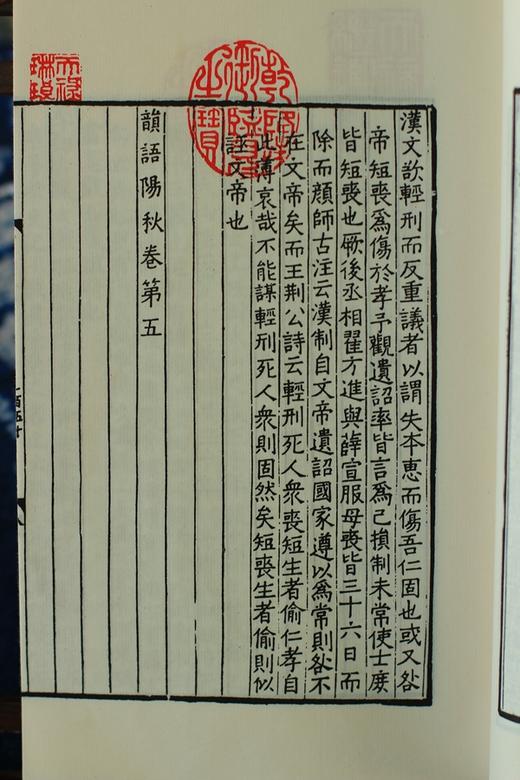 漢文欲輕刑而反重議者以謂失本惠而傷吾仁固也或又咎
帝短喪爲傷於孝予觀遺詔率皆言爲己損制未常使士庻
皆短喪也厥後丞相翟方進與薛宣服母喪皆三十六日而
除而顔師古注云漢制自文帝遺詔國家遵以爲常則咎不
在文帝矣而王荆公詩云輕刑死人衆喪短生者偷仁孝自
此薄哀哉不能謀輕刑死人衆則固然矣短喪生者偷則似
誣文帝也
韻語陽秋卷第五
乾隆御覽之寶
天祿琳琅
一百五十